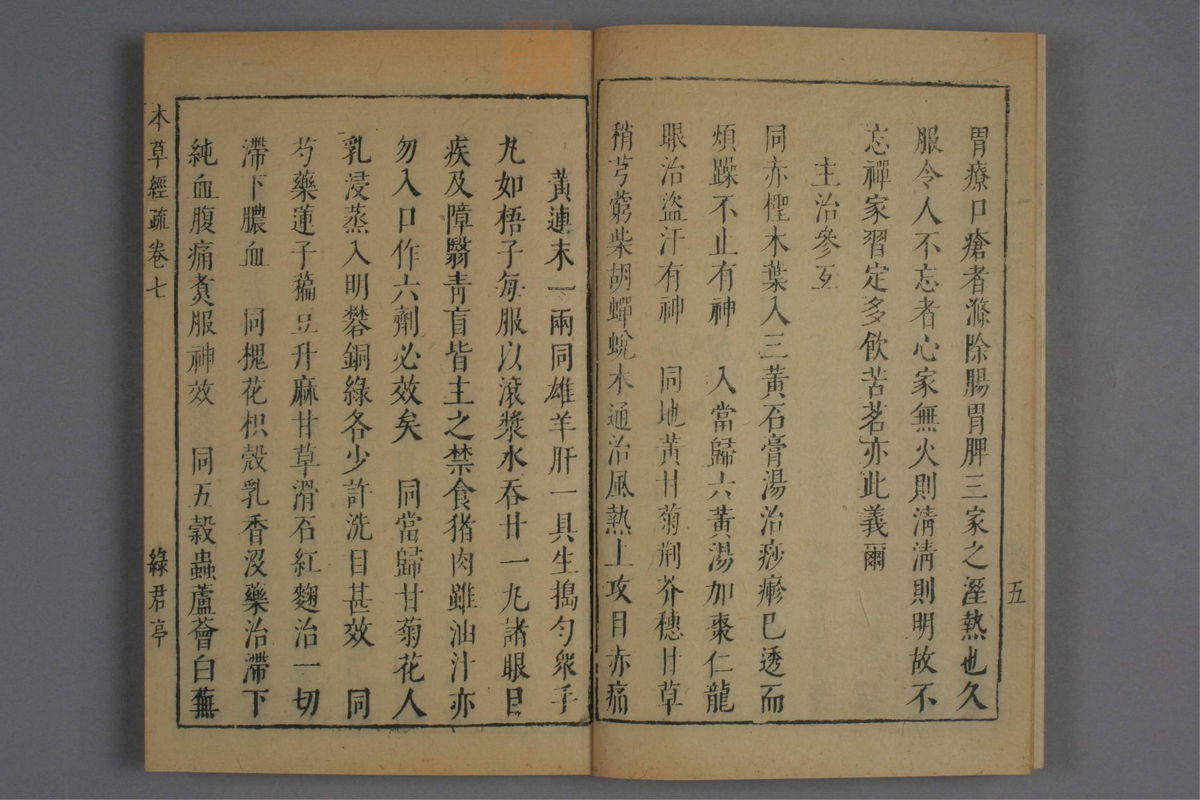 胃療口瘡者滌除腸胃脾三家之溼熱也久
服令人不忘者心家無火則淸淸則明故不
忘禪家習定多飮苦茗亦此義爾
主治參互
同赤檉木葉入三黃石膏湯治痧疹已透而
煩躁不止有神　入當歸六黃湯加棗仁龍
眼治盜汗有神　同地黃甘菊荆芥穗甘草
稍芎藭柴胡蟬蛻木通治風熱上攻目赤痛
五
黃連末一兩同雄羊肝一具生搗勻衆手
丸如梧子每服以滾漿水吞廿一丸諸眼目
疾及障翳靑盲皆主之禁食猪肉雖油汁亦
勿入口作六劑必效矣　同當歸甘菊花人
乳浸蒸入明礬銅綠各少許洗目甚效　同
芍藥蓮子藊豆升麻甘草滑石紅麴治一切
滯下膿血　同槐花枳殼乳香沒藥治滯下
純血腹痛煑服神效　同五穀蟲蘆薈白蕪
本草經疏卷七
綠君亭